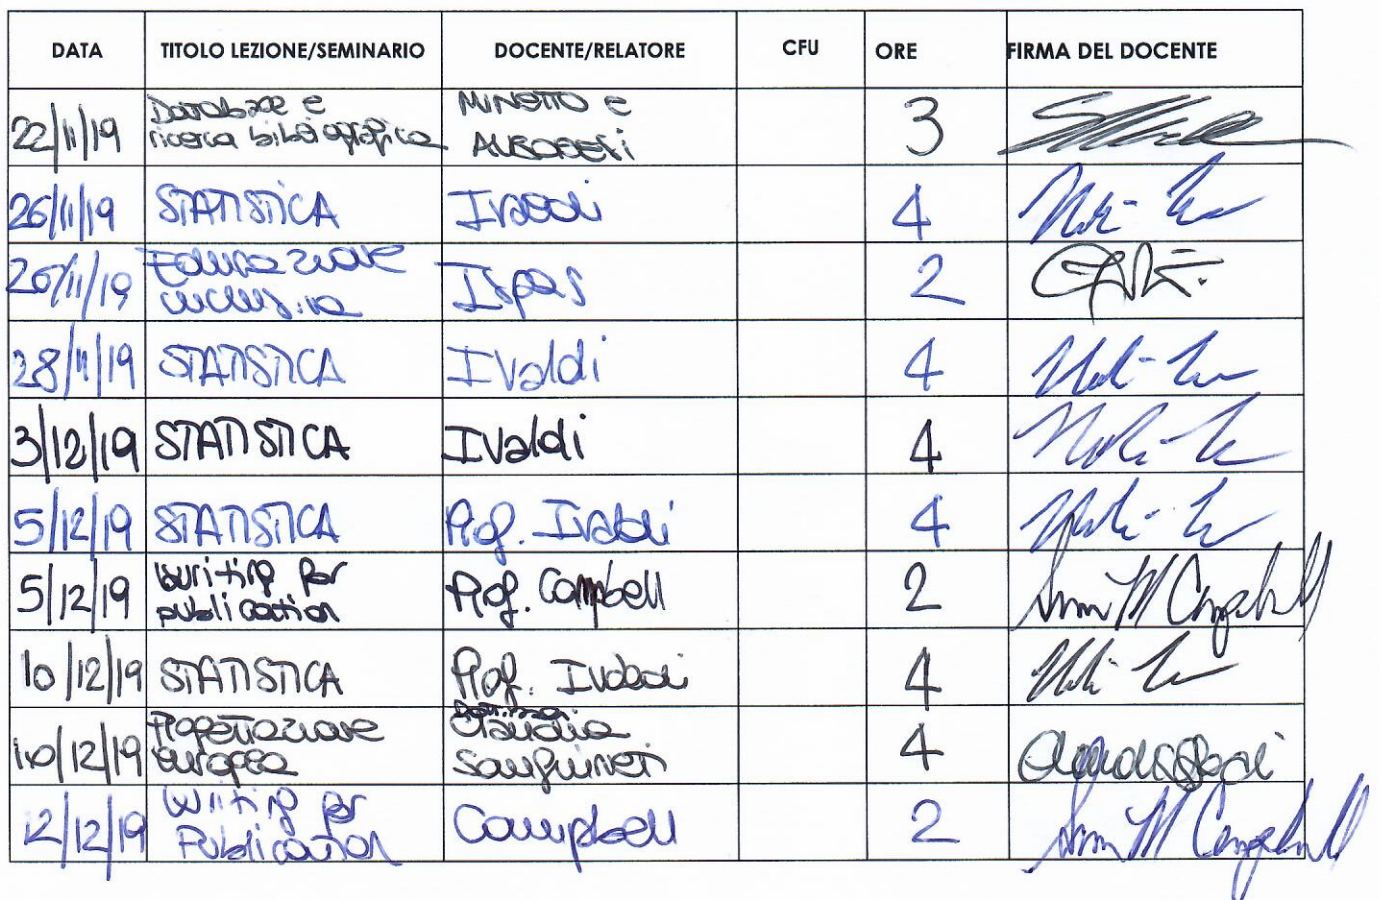 DATA TITOLO LEZIONE/SEMINARIO DOCENTE/RELATORE CFU ORE FIRMA DEL DOCENTE
22/11/19 Database e ricerca bibliografica MINETTO e 3
26/11/19 STATISTICA Ivaldi 4
26/11/19 Educazione inclusiva Ispas 2
28/11/19 STATISTICA Ivaldi 4
3/12/19 STATISTICA Ivaldi 4
5/12/19 STATISTICA Prof. Ivaldi 4
5/12/19 Writing for publication Prof. Campbell 2 M Campbell
10/12/19 STATISTICA Prof. Ivaldi 4
10/12/19 Progettazione europea Dott.ssa Claudia Sanguineti 4
12/12/19 Writing for Publication Campbell 2 M Campbell